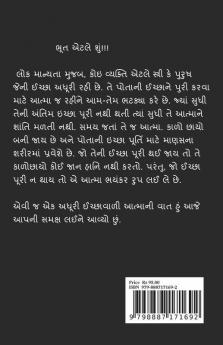 ભૂત એટલે શું!!!
લોક માન્યતા મુજબ, કોઇ વ્યક્તિ એટલે સ્ત્રી કે પુરુષ
જેની ઈચ્છા અધૂરી રહી છે. તે પોતાની ઈચ્છાને પુરી કરવા
માટે આત્મા જ રહીને આમ-તેમ ભટક્યા કરે છે. જ્યાં સુધી
તેની અંતિમ ઇચ્છા પૂરી નથી થતી ત્યાં સુધી તે આત્માને
શાંતિ મળતી નથી. સમય જતાં તે જ આત્મા. કાળો છાયો
બની જાય છે અને પોતાની ઇચ્છા પૂર્તિ માટે માણસના
શરીરમાં પ્રવેશે છે. જો તેની ઇચ્છા પૂરી થઈ જાય તો તે
કાળોછાયો કોઈ જાન હાનિ નથી કરતો. પરંતુ, જો ઈચ્છા
પૂરી ન થાય તો એ આત્મા ભયંકર રૂપ લઈ લે છે.
એવી જ એક અધૂરી ઈચ્છાવાળી આત્માની વાત હું આજે
આપની સમક્ષ લઈને આવ્યો છું.
Price Rs 90.00
ISBN 979-888717169-2
9 798887 171692